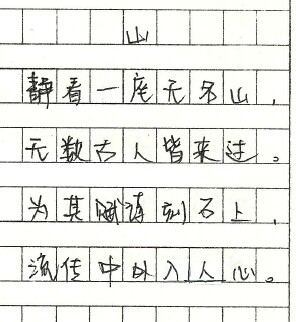 山
静看一座无名山，
无数古人皆来过。
为其赋诗刻石上，
流传中外入人心。